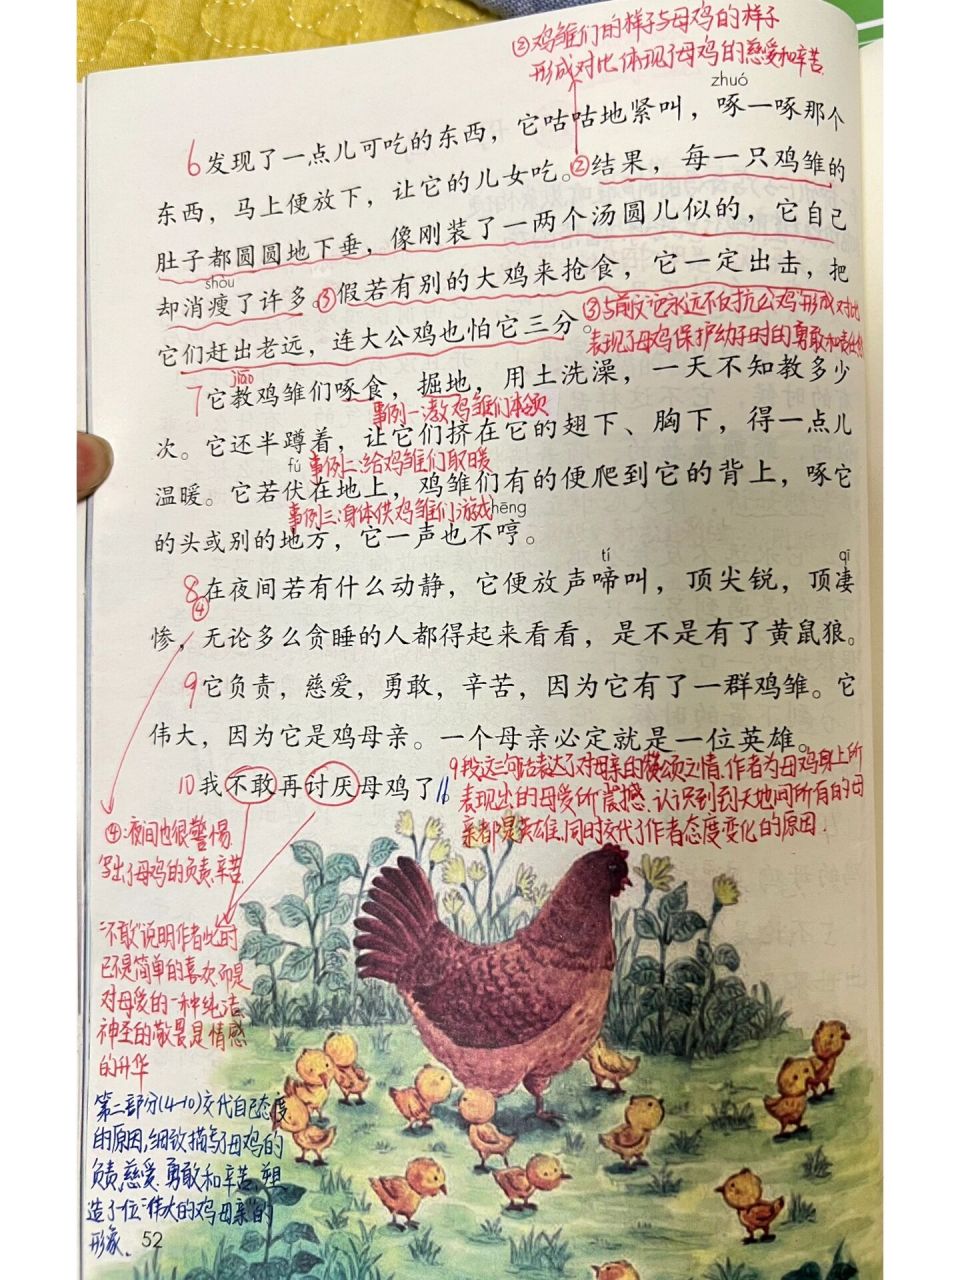 ②鸡雏们的样子与母鸡的样子
形成对比体现了母鸡的慈爱和辛苦
zhuó
6发现了一点儿可吃的东西，它咕咕地紧叫，啄一啄那个
东西，马上便放下，让它的儿女吃。②结果，每一只鸡雏的
肚子都圆圆地下垂，像刚装了一两个汤圆儿似的，它自己
shòu
却消瘦了许多。③假若有别的大鸡来抢食，它一定出击，把
③与前文"它永远不反抗公鸡"形成对比
它们赶出老远，连大公鸡也怕它三分。
表现了母鸡保护幼子时的勇敢和责任
jiāo
7它教鸡雏们啄食，掘地，用土洗澡，一天不知教多少
事例一:教鸡雏们本领
次。它还半蹲着，让它们挤在它的翅下、胸下，得一点儿
fú
事例二:给鸡雏们取暖
温暖。它若伏在地上，鸡雏们有的便爬到它的背上，啄它
事例三:身体供鸡雏们游戏
hēng
的头或别的地方，它一声也不哼。
tí
qī
8在夜间若有什么动静，它便放声啼叫，顶尖锐，顶凄
④
惨，无论多么贪睡的人都得起来看看，是不是有了黄鼠狼。
9它负责，慈爱，勇敢，辛苦，因为它有了一群鸡雏。它
伟大，因为它是鸡母亲。一个母亲必定就是一位英雄。
10我不敢再讨厌母鸡了。
9段这三句话表达了对母亲的颂之情.作者为母鸡身上所
表现出的母爱所震撼.认识到到天地间所有的母
亲都是英雄.同时交代了作者态度变化的原因.
④:夜间也很警惕.
写出了母鸡的负责.辛苦
"不敢"说明作者此时
已不是简单的喜欢而是
对母爱的一种纯洁.
神圣的敬畏是情感
的升华
第二部分(4-10)交代自己态度
的原因,细致描写了母鸡的
负责,慈爱.勇敢和辛苦,塑
造了一位"伟大的鸡母亲"的
形象.
52